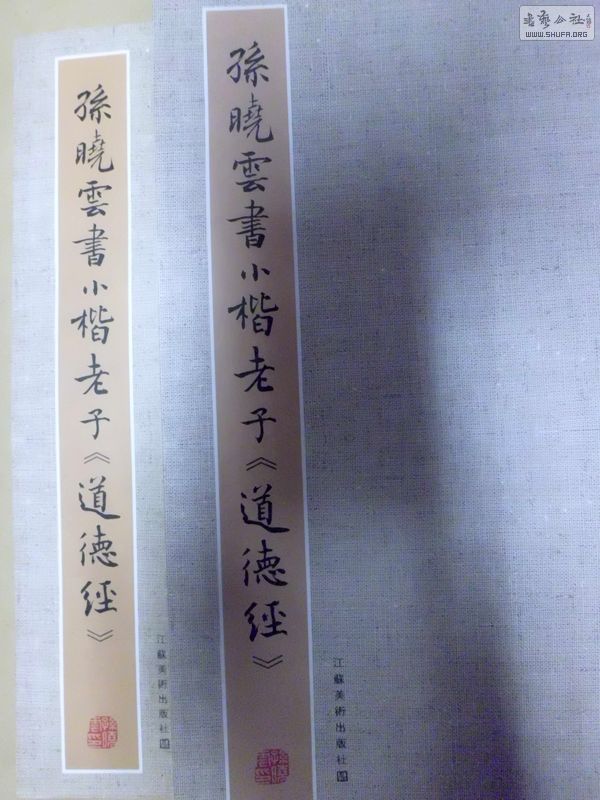 孫曉雲書小楷老子《道德經》
江蘇美術出版社
孫曉雲書小楷老子《道德經》
江蘇美術出版社
書藝公社
WWW.SHUFA.ORG